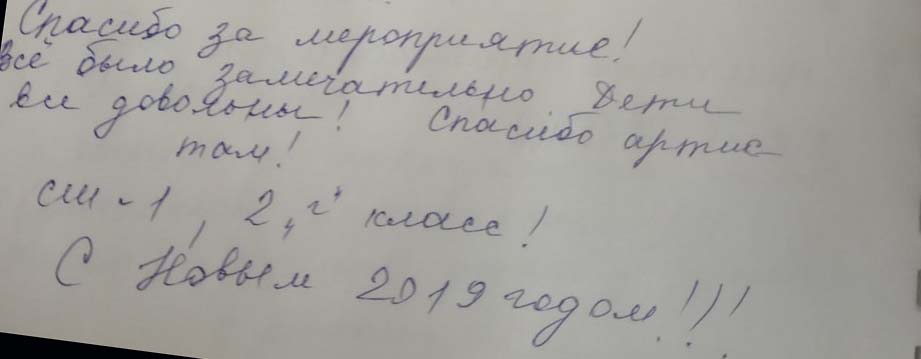 Спасибо за мероприятие!
Всё было замечательно. Дети
все довольны! Спасибо артис
там!
сш-1, 2 "г" класс!
С Новым 2019 годом!!!